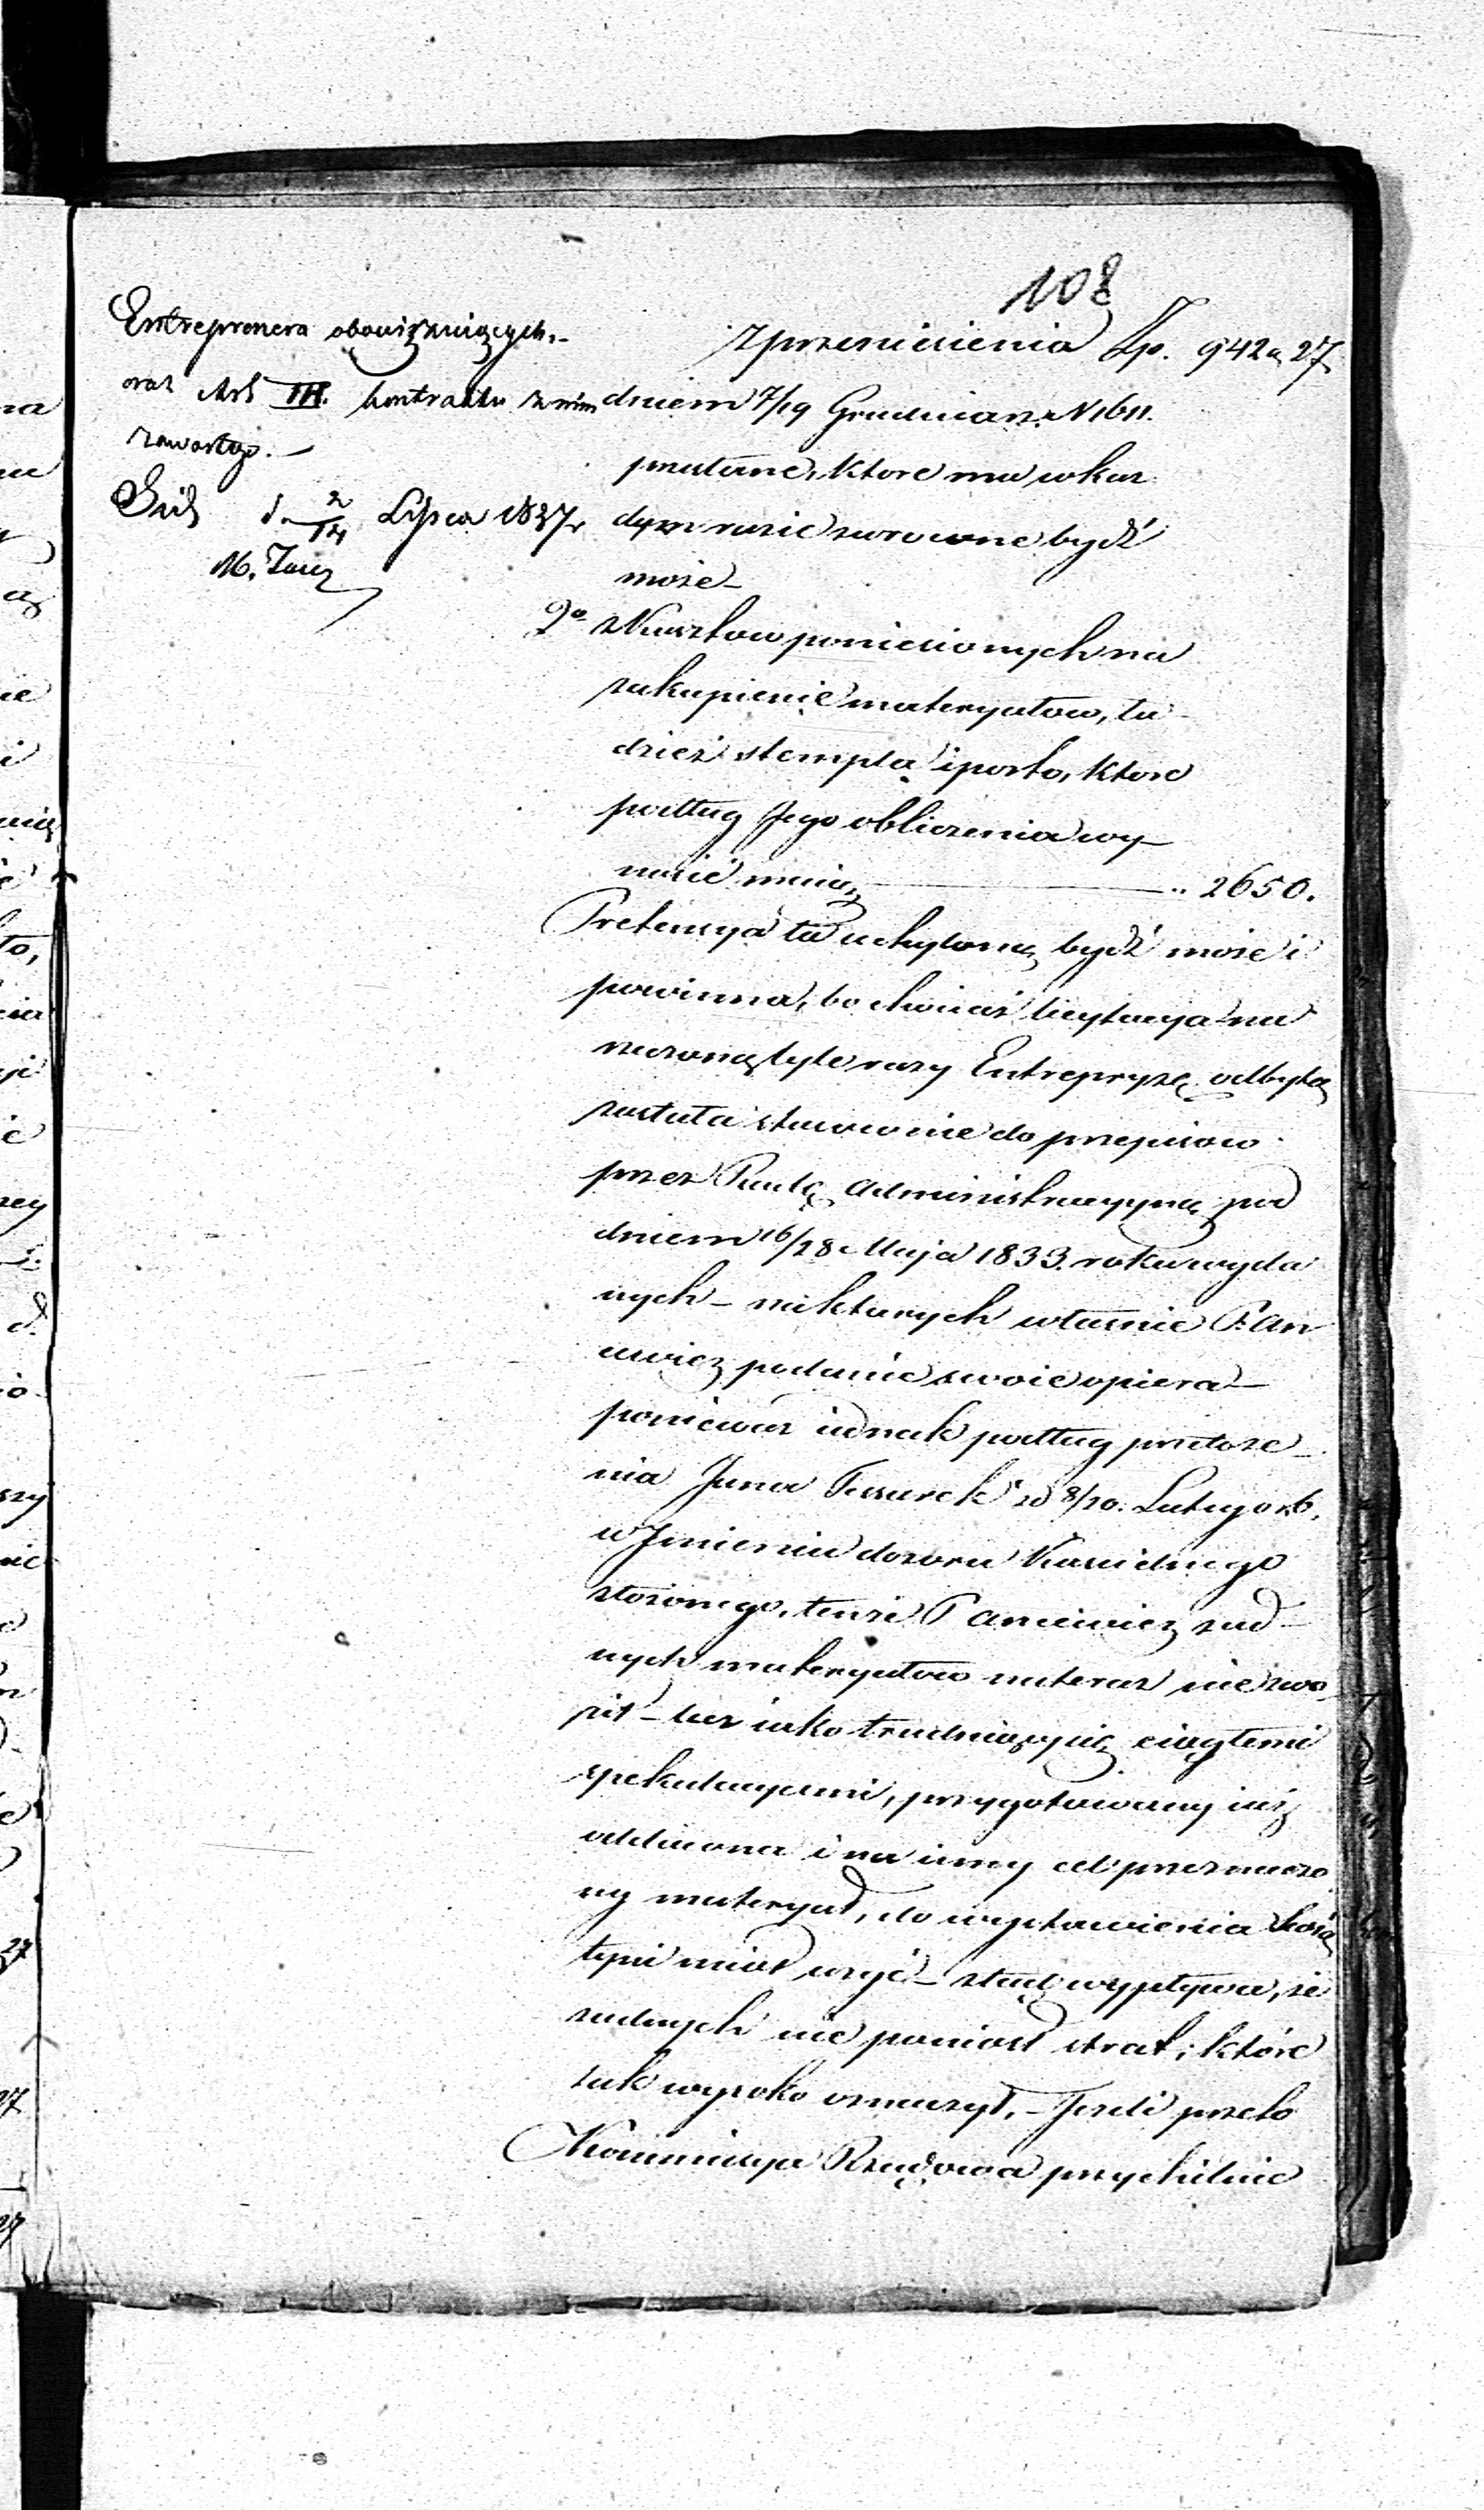 108
Entreprenera obowiązuiących.-
oraz Art III. kontraktu z nim
zawartego.-
d. 2/14 Lipca 1837r
z przeniesienia Zp. 942 " 27
dniem 7/19 Grudnia r. z. N 1611.
przesłane, które ma w każ
dym razie zwrócone bydź
może -
2o z Kosztów poniesionych na
zakupienie materyałów, tu-
dzież stempla i porto, które
podług Jego obliczenia wy-
nosić maią " 2650.
Pretensya ta uchyloną bydź może i
powinna, bo chociaż licytacya na
rzeczoną tyle razy Entrepryzę odbytą
została stosownie do przepisów
przez Radę Administracyjną pod
dniem 16/28 Maja 1833. roku wyda
nych - na których właśnie P. Pan
cewicz podanie swoie opiera -
ponieważ iednak podług przełoże-
nia Jana z d 8/20. Lutego r b.
w Imieniu dozoru Kościelnego
złożonego, tenże żad-
nych materyałów na teraz nie zwo
ził - lecz iako trudniący się ciągłemi
spekulacyami, przygotowany iuż
oddawna i na inny cel przeznaczo
ny materyał, do wystawienia Kośc
tym miał użyć - ztąd wypływa, że
żadnych nie poniósł strat, które
tak wysoko oznaczył, - Jeżeli przeto
Kommissya Rządowa przychilnie